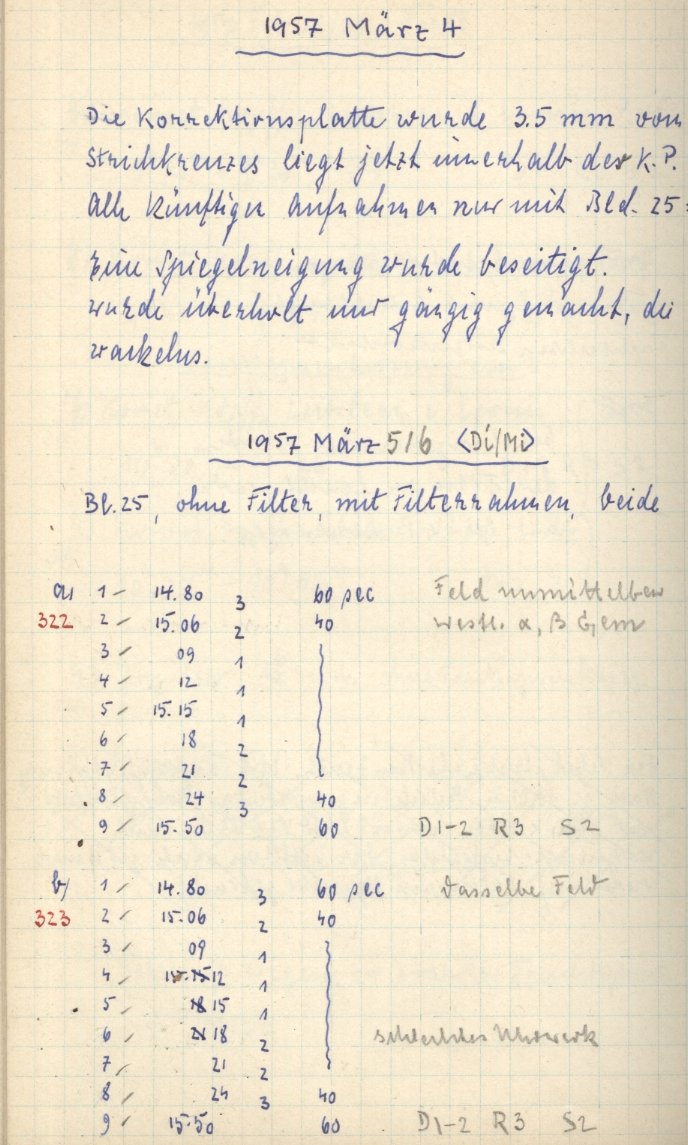 1957 März 4
Die Korrektionsplatte wurde 3.5 mm vom
Strichkreuzes liegt jetzt innerhalb der K.P.
Alle künftigen Aufnahmen nur mit Bld. 25
Eine Spiegelneigung wurde beseitigt.
wurde überholt und gängig gemacht, die
wackelns.
1957 März 5/6 <Di/Mi>
Bl. 25, ohne Filter, mit Filterrahmen, beide
a) 1 – 14.80 3 60 sec Feld unmittelbar
322 2 – 15.06 2 40 westl. α, β Gem
3 – 09 1
4 – 12 1
5 – 15.15 1
6 – 18 2
7 – 21 2
8 – 24 3 40
9 – 15.50 60 D1-2 R3 S2
b) 1 – 14.80 3 60 sec dasselbe Feld
323 2 – 15.06 2 40
3 – 09 1
4 – 12 1
5 – 15 1
6 – 18 2 schlechtes Uhrwerk
7 – 21 2
8 – 24 3 40
9 – 15.50 60 D1-2 R3 S2